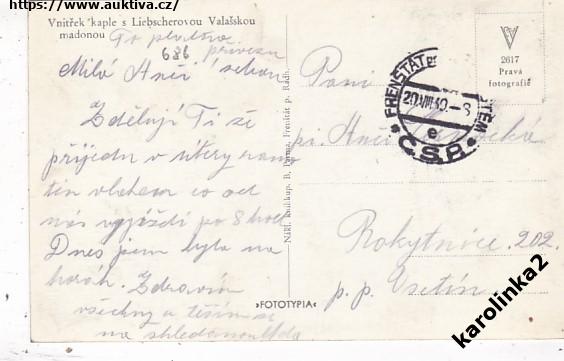 https://www.auktiva.cz/
Vnitřek kaple s Liebscherovou Valašskou
madonou
To plátno
686 přivezu
Milá Anči sebou
Zděluji Ti že
přijedu v úterý
tím vlakem co od
nás vyjíždí po 8 hod
Dnes jsem byla na
horách. Zdravím
všechny a těším se
na shledanou
Nákl. Knihkup. B. Frenštát p. Radh.
»FOTOTYPIA«
V
2617
Pravá
fotografie
FRENŠTÁT
20.VIII.30.-8
e
Č.S.R.
Paní
Rokytnice 202.
p. p. Vsetín.
karolinka2